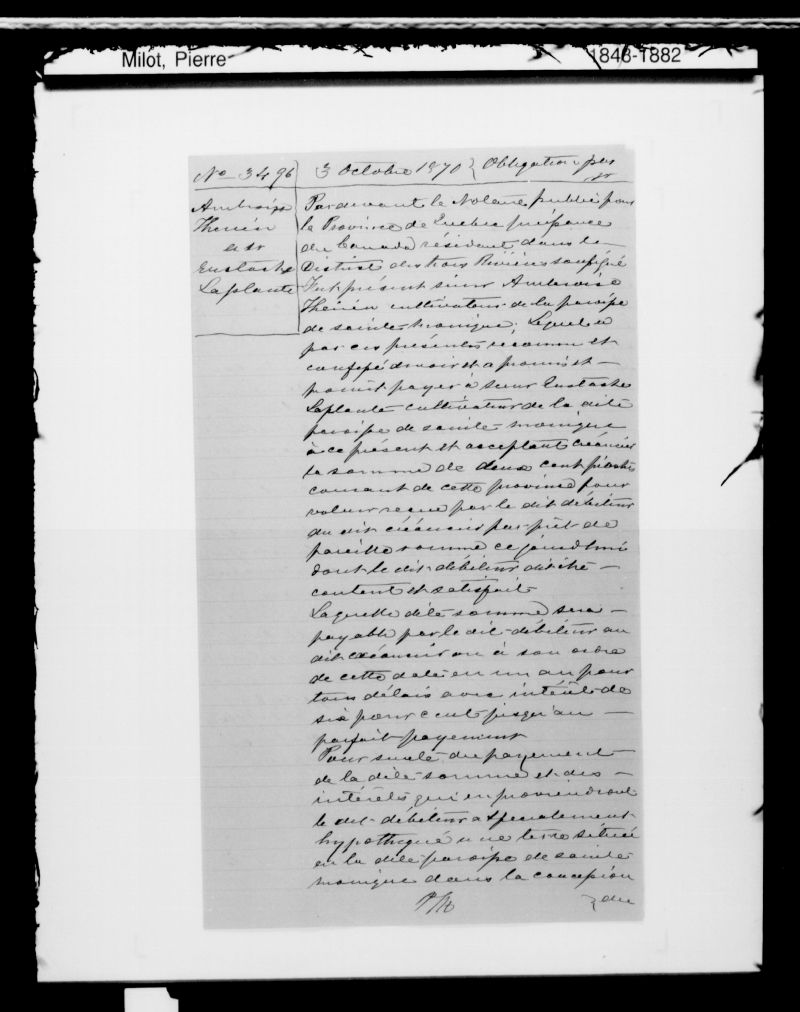 Milot, Pierre
1848-1882
No 3496
3 Octobre 1870
Obligation par
Ambroise
Therien
à Sr
Eustache
Laplante
Pardevant le Notaire public pour
la Province de Quebec puissance
du Canada résidant dans le
District des trois Rivières soussigné
Fut présent sieur Ambroise
Therien cultivateur de la paroisse
de sainte monique, Lequel a
par ces présentes reconnu et
confessé devoir et a promis et
promet payer à sieur Eustache
Laplante cultivateur de la dite
paroisse de sainte monique
à ce présent et acceptant créancier
la somme de deux cent piastres
courant de cette province pour
valeur reçue par le dit débiteur
du dit créancier par prêt de
pareille somme ce jourd'hui
dont le dit débiteur dit être
content et satisfait
Laquelle dite somme sera
payable par le dit débiteur au
dit créancier ou à son ordre
de cette date en un an pour
tous délais avec intérêts de
six pour cent jusqu'au
parfait payement
Pour sureté du payement
de la dite somme et des
intérêts qui en proviendront
le dit débiteur a spécialement
hypothéqué une terre située
en la dite paroisse de sainte
monique dans la concession
du